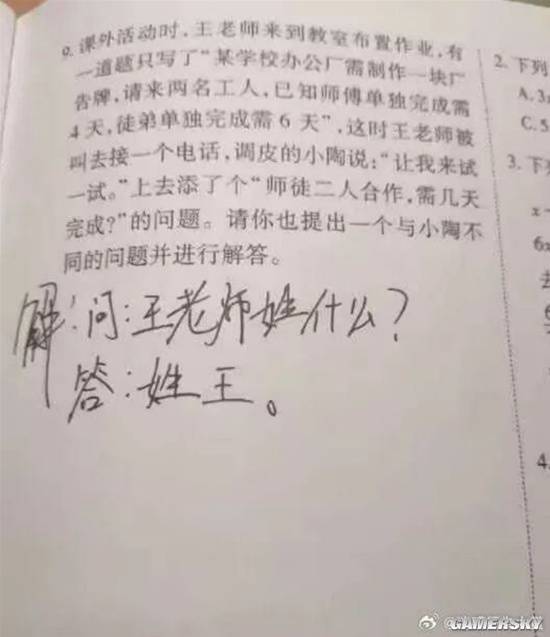 9. 课外活动时,王老师来到教室布置作业,有
一道题只写了“某学校办公厂需制作一块广
告牌,请来两名工人,已知师傅单独完成需
4天,徒弟单独完成需6天”,这时王老师被
叫去接一个电话,调皮的小陶说:“让我来试
一试。”上去添了个“师徒二人合作,需几天
完成?”的问题。请你也提出一个与小陶不
同的问题并进行解答。
解:问:王老师姓什么?
答:姓王。
2. 下列
A.3
C.5
3. 下
x
6x
4.
GAMERSKY